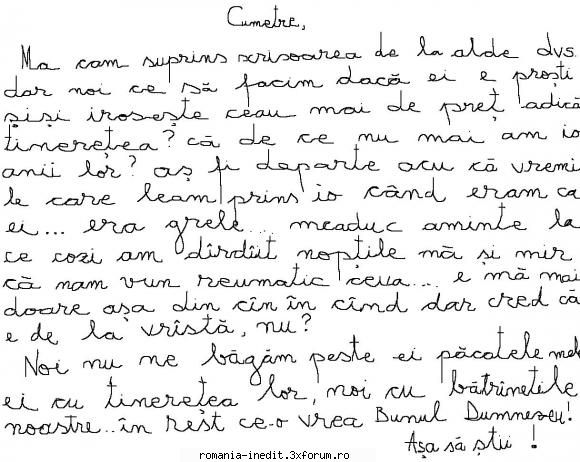 Cumetre,
Ma cam suprins scrisoarea de la alde dvs.
dar noi ce să facim dacă ei e proști
șiși irosește ceau mai de preț adică
tinerețea? că de ce nu mai am io
anii lor? aș fi departe acu că vremi
le care leam prins io când eram ca
ei... era grele... meaduc aminte la
ce cozi am dîrdîit nopțile mă și mir
că nam vun reumatic ceva... e mă mai
doare așa din cîn în cînd dar cred că
e de la vrîstă, nu?
Noi nu ne băgăm peste ei păcatele mele
ei cu tinerețea lor, noi cu bătrînețile
noastre.. în rest ce-o vrea Bunul Dumnezeu!
Așa să știi !
romania-inedit.3xforum.ro